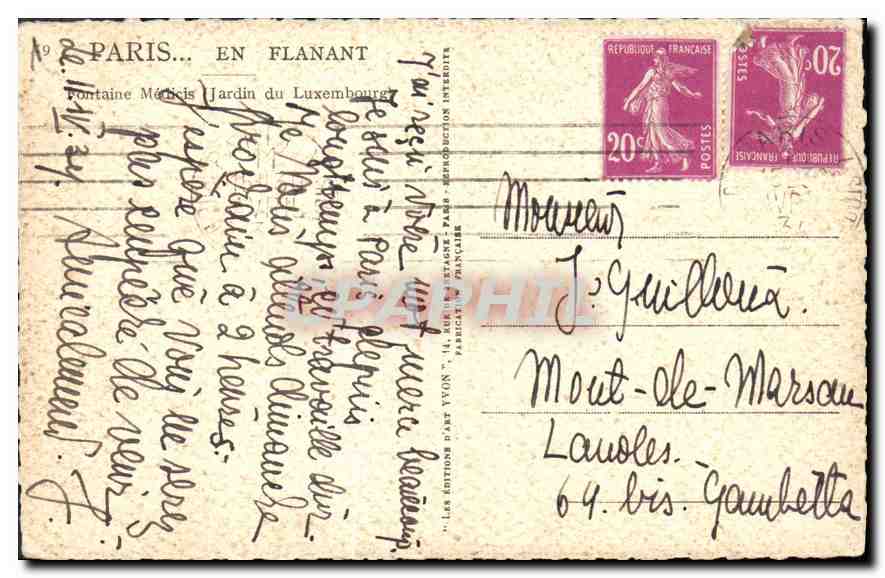 19 PARIS... EN FLANANT
Fontaine Médicis (Jardin du Luxembourg)
le 11 IV 34.
J'ai reçu votre mot merci beaucoup.
Je suis à Paris depuis
longtemps et travaille dur.
Je vous attends dimanche
prochain à 2 heures.
J'espère que vous ne serez
plus empêché de venir.
Amicalement
J.
"LES ÉDITIONS D'ART YVON", 14, RUE DE BRETAGNE - PARIS - REPRODUCTION INTERDITE
FABRICATION FRANÇAISE
RÉPUBLIQUE FRANÇAISE
20c
POSTES
RÉPUBLIQUE FRANÇAISE
20c
POSTES
Monsieur
J. Guilloux.
Mont-de-Marsan
Landes.
64. bis. Gambetta
CPAPHIL